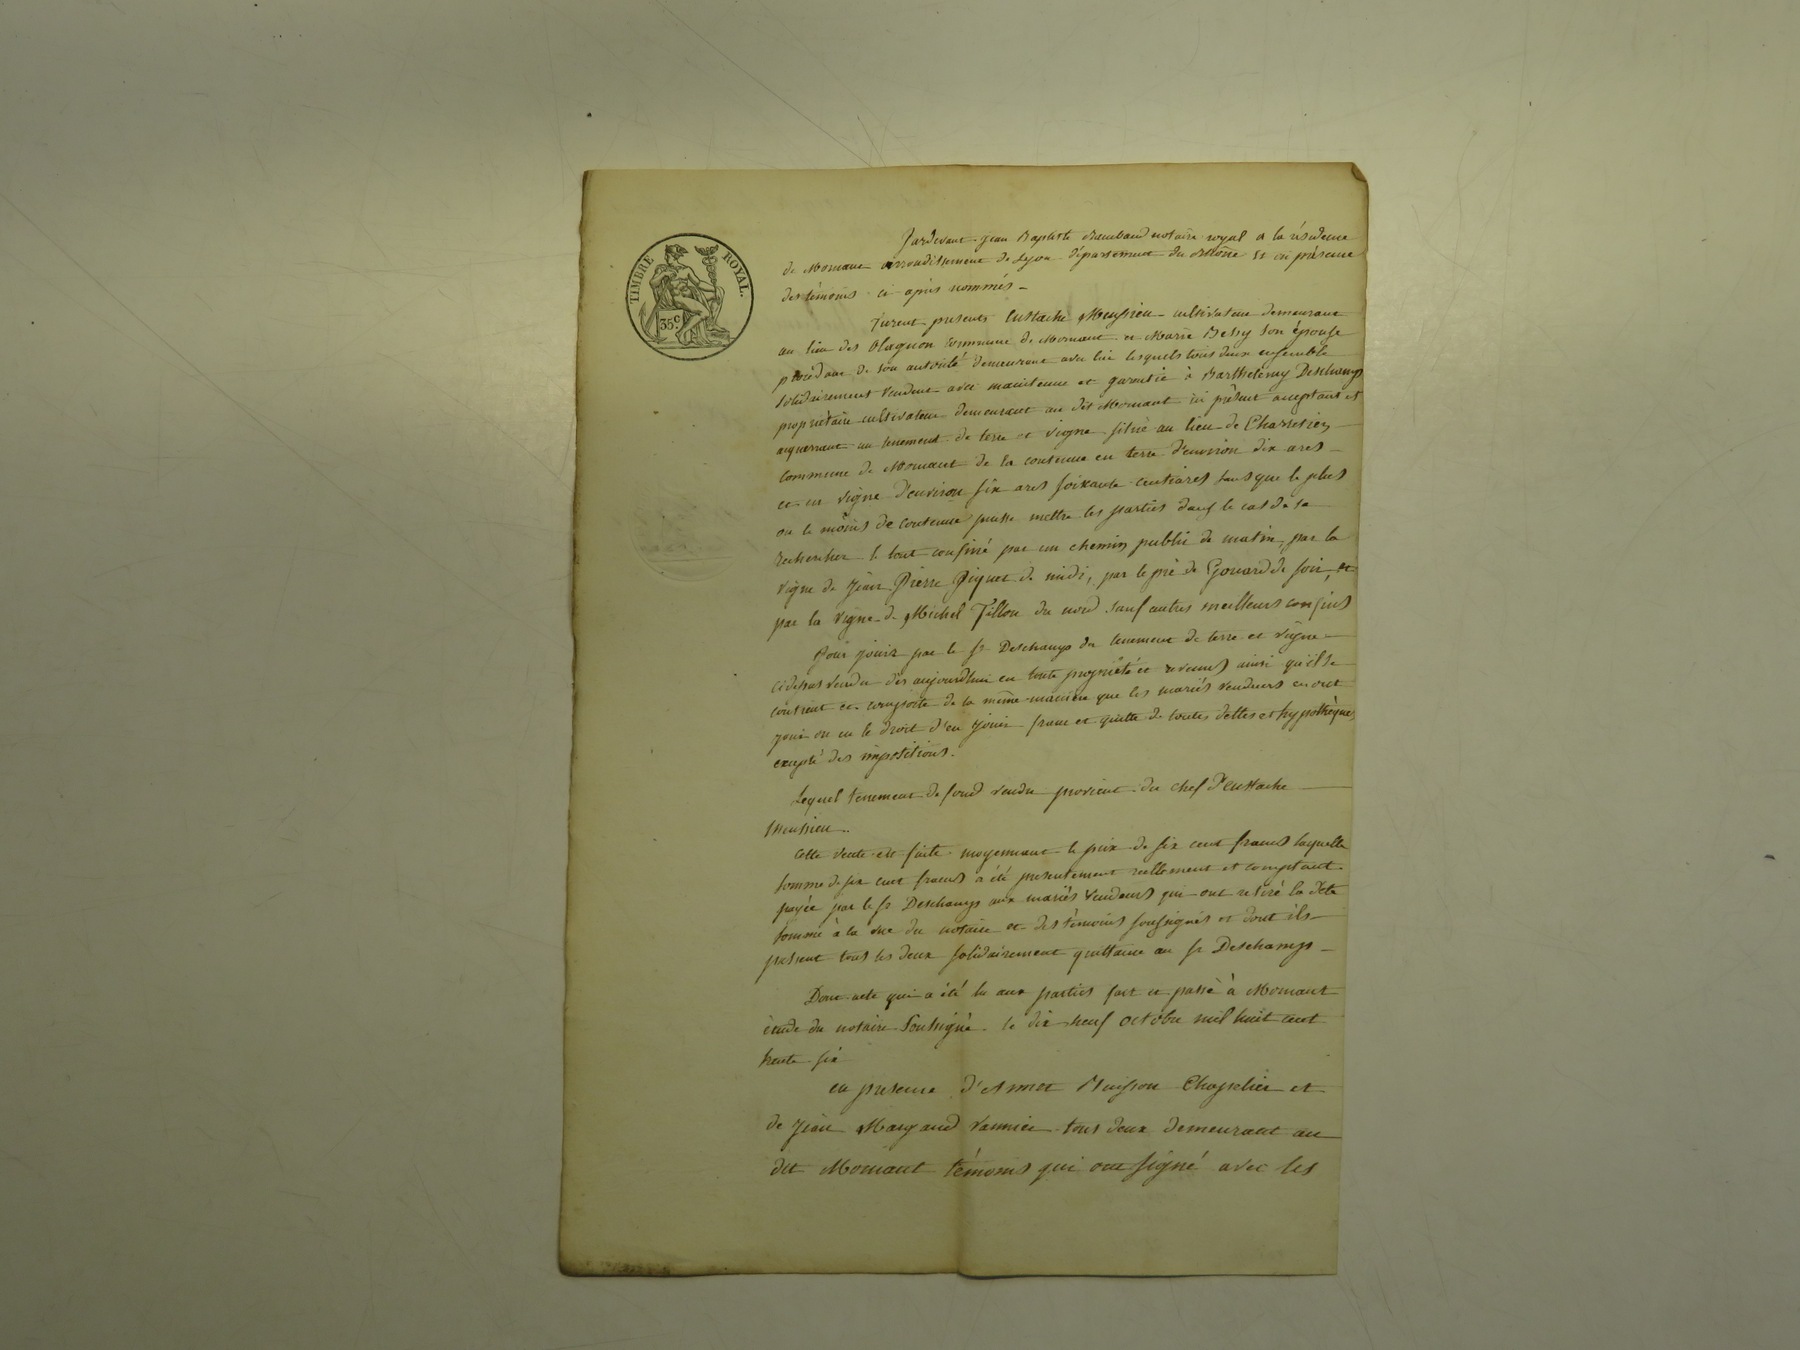 TIMBRE ROYAL.
35 c
Pardevant Jean Baptiste notaire royal a la résidence
de Mornant arrondissement de Lyon département du Rhône et en présence
des témoins ci après nommés
furent presents Eustache Meussieu cultivateur demeurant
au lieu des commune de Mornant et Marie Bessy son épouse
procédant de son autorité demeurant avec lui lesquels tous deux ensemble
solidairement vendent avec maintenue et garentie à Barthelemy Deschamps
propriétaire cultivateur demeurant au dit Mornant ici présent acceptant et
acquerrant un tenement de terre et vigne situé au lieu de
commune de Mornant de la contenue en terre d'environ dix ares
et en vigne d'environ six ares soixante centiares sans que le plus
ou le moins de contenue puisse mettre les parties dans le cas de se
rechercher le tout confiné par un chemin public de matin, par la
vigne de Jean Pierre Piguet de midi, par le pré de Gonard de soir, et
par la vigne de Michel Fillon du nord sauf autres meilleurs confins
Pour jouir par le sr Deschamps du tenement de terre et vigne
cidessus vendu dès aujourdhui en toute propriété et revenus ainsi qu'il se
contient et comporte de la même manière que les mariés vendeurs en ont
joui ou eu le droit d'en jouir franc et quitte de toutes dettes et hypothèques
excepté des impositions.
Lequel tenement de fond vendu provient du chef d'Eustache
Meussieu..
Cette vente est faite moyennant le prix de six cent francs laquelle
somme de six cent francs a été présentement réellement et comptant
payée par le sr Deschamps aux mariés vendeurs qui ont retiré la dite
somme à la vue du notaire et des témoins soussignés et dont ils
passent tous les deux solidairement quittance au sr Deschamps
Dont acte qui a été lu aux parties fait et passé à Mornant
étude du notaire soussigné le dix neuf octobre mil huit cent
trente six
en presence d'Annet Buisson Chapelier et
de Jean vannier tous deux demeurant au
dit Mornant témoins qui ont signé avec les